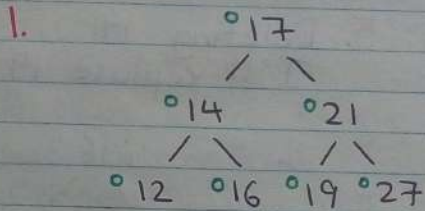 1.
17
14 21
12 16 19 27